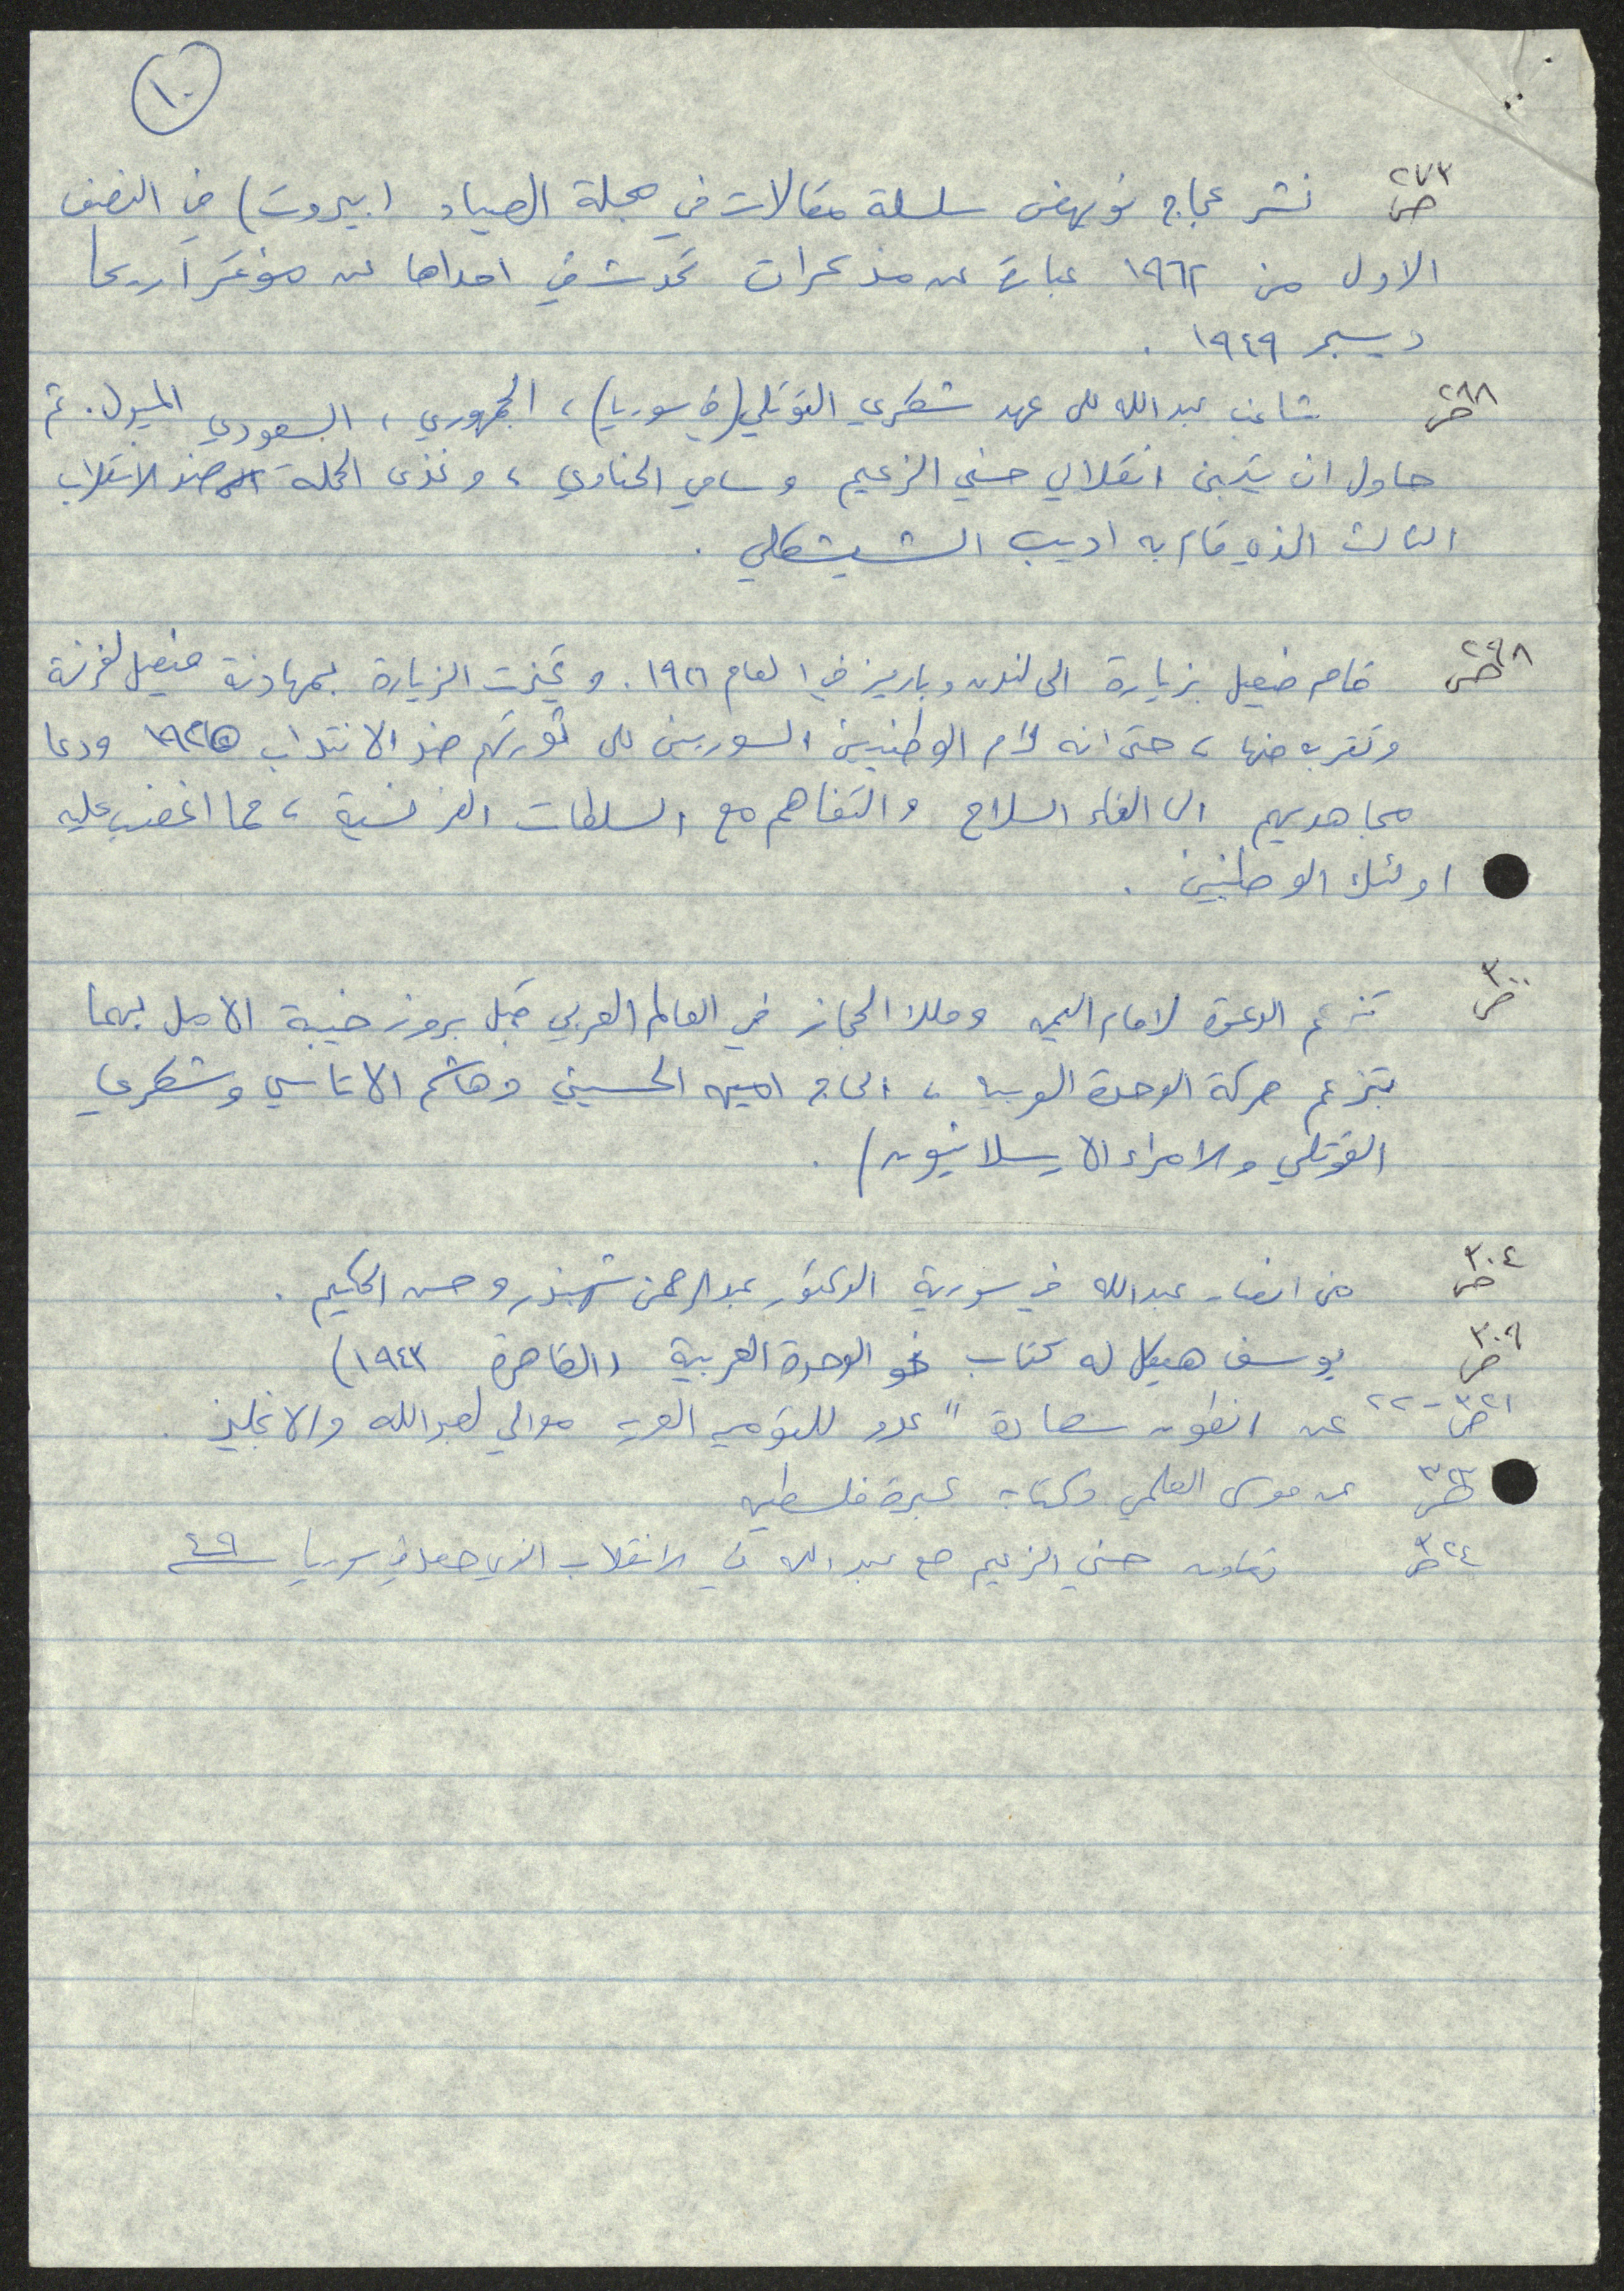 ١٠
ص ٢٧٣ نشر عجاج نويهض سلسلة مقالات في مجلة الصياد (بيروت) في النصف
الاول من ١٩٦٢ عبارة عن مذكرات تحدث في احداها عن مؤتمر اريحا
ديسمبر ١٩٤٩ .
ص ٢٨٨ شاغب عبدالله على عهد شكري القوتلي (في سوريا) ، الجمهوري ، السعودي الميول . ثم
حاول ان يتبنى انقلابي حسني الزعيم وسامي الحناوي ، وغذى الحملة ضد الانقلاب
الثالث الذي قام به اديب الشيشكلي .
ص ٢٩٨ قام فيصل بزيارة الى لندن وباريز في العام ١٩٢٦ . وتميزت الزيارة بمهادنة فيصل لفرنسة
وتقربه منها ، حتى انه لام الوطنيين السوريين على ثورتهم ضد الانتداب ١٩٢٥ ودعا
مجاهديهم الى القاء السلاح والتفاهم مع السلطات الفرنسية ، مما اغضب عليه
اولئك الوطنيين .
ص ٣٠٠ تزعم الدعوة لامام اليمن وملك الحجاز في العالم العربي قبل بروز خيبة الامل بهما
بتزعم حركة الوحدة العربية ، الحاج امين الحسيني وهاشم الاتاسي وشكري
القوتلي والامراء الارسلانيون) .
ص ٣٠٤ من انصار عبدالله في سورية الدكتور عبدالرحمن شهبندر وحسن الحكيم .
ص ٣٠٩ يوسف هيكل له كتاب نحو الوحدة العربية (القاهرة ١٩٤٣)
ص ٣٢١-٢٢ عن انطون سعادة " عدو للقوميه العربيه موالي لعبدالله والانجليز .
ص ٣٢٣ عن موسى العلمي وكتابه عبرة فلسطين
ص ٣٢٤ تعاون حسني الزعيم مع عبدالله في الانقلاب الذي حصل في سوريا ٤٩